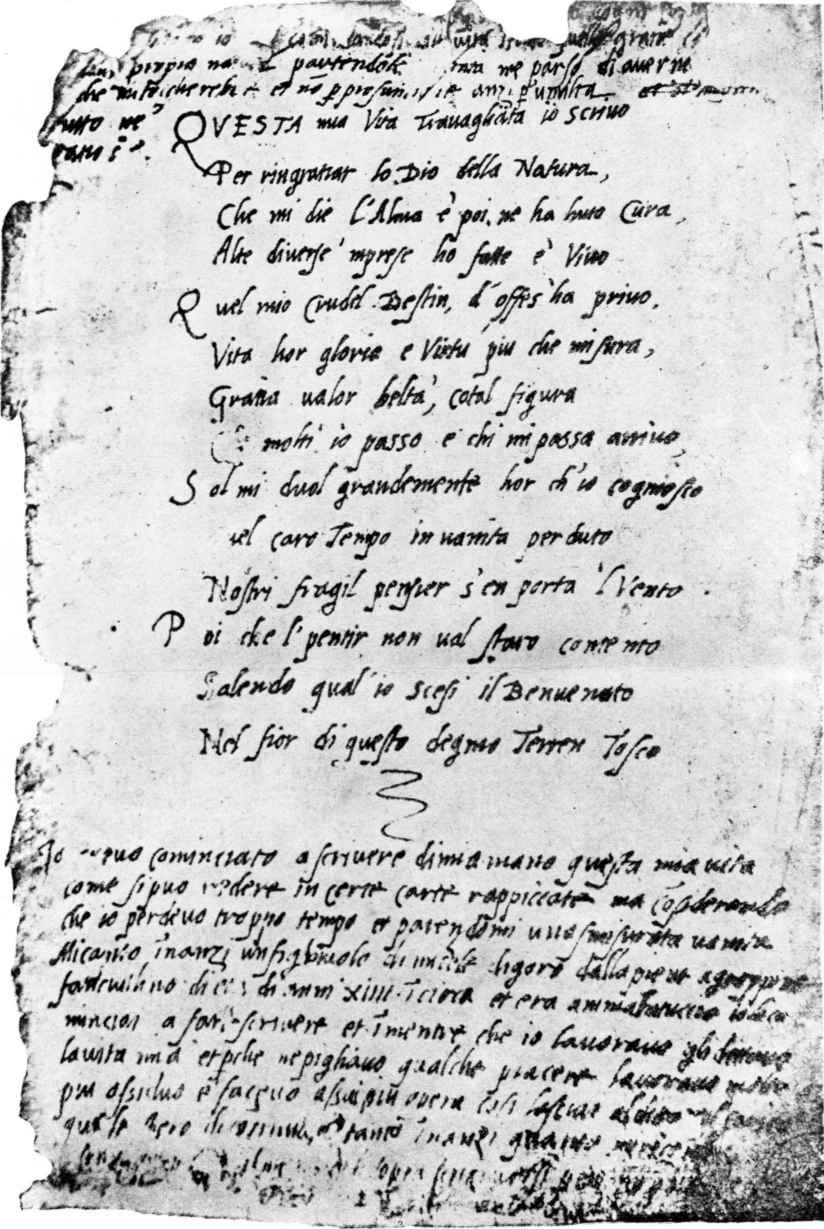 propio parendomi me parso di averne
che et nõ anzi p umilta
tutto ne
QVESTA mia Vita Travagliata io scrivo
Per ringratiar lo Dio della Natura,
Che mi diè l'Alma è poi, ne ha huto Cura,
Alte diverse 'mprese ho fatte è Vivo
Quel mio Crudel Destin, d'offes'ha privo,
Vita hor gloria e Virtu piu che misura,
Gratia valor beltà, cotal figura
molti io passo e chi mi passa arrivo,
Sol mi duol grandemente hor ch'io cogniosco
vel caro Tempo in vanita perduto
Nostri fragil pensier s'en porta 'l Vento
Poi che l'pentir non val staro contento
Salendo qual'io scesi il Benvenuto
Nel fior di questo degnio Terren Tosco
Io cominciato a scrivere di mia mano questa mia vita
come si puo vedere in certe carte rappiccate ma cõsiderando
che io perdevo troppo tempo et parendomi una smisurata vanita
Mi capito inanzi un figliuolo di michele di goro dalla pieve a groppine
fanciullino di eta di anni XIIII incirca et era ammalatuccio io lo co
minciai a fare scrivere et inmentre che io lavoravo gli dittavo
la vita mia et pche ne pigliavo qualche piacere lavoravo molto
piu assiduo e facevo assai piu opera cosi lasciai al ditto
quale spero di continuare tanto inanzi quanto
sopra